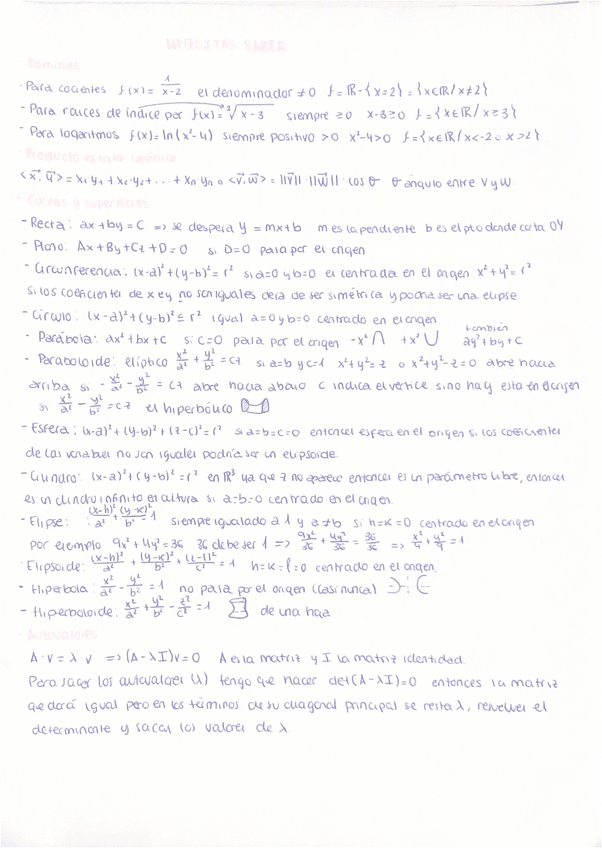 NECESITAS SABER
Dominios
- Para cocientes f(x) = 1/(x-2) el denominador ≠ 0 f = ℝ - {x=2} = {x∈ℝ / x≠2}
- Para raíces de índice par f(x) = ²√(x-3) siempre ≥0 x-3≥0 f = {x∈ℝ / x≥3}
- Para logaritmos f(x) = ln(x²-4) siempre positivo >0 x²-4>0 f = {x∈ℝ / x<-2 o x>2}
Producto escalar canónico
<x⃗, y⃗> = x₁y₁ + x₂·y₂ + ... + xₙ·yₙ o <v⃗, w⃗> = ||v⃗||·||w⃗||·cos θ θ ángulo entre V y W
Curvas y superficies
- Recta: ax + by = C => se despeja y = mx + b m es la pendiente b es el pto donde corta OY
- Plano: Ax + By + Cz + D = 0 si D=0 pasa por el origen
- Circunferencia: (x-a)² + (y-b)² = r² si a=0 y b=0 el centrada en el origen x² + y² = r²
si los coeficientes de x e y no son iguales deja de ser simétrica y podría ser una elipse.
- Círculo: (x-a)² + (y-b)² ≤ r² igual a=0 y b=0 centrado en el origen
- Parábola: ax² + bx + c si c=0 pasa por el origen -x² ∩ +x² ∪ también ay² + by + c
- Paraboloide: elíptico x²/a² + y²/b² = cz si a=b y c=1 x² + y² = z o x² + y² - z = 0 abre hacia
arriba si -x²/a² - y²/b² = cz abre hacia abajo c indica el vértice si no hay esta en el origen
si x²/a² - y²/b² = cz el hiperbólico
- Esfera: (x-a)² + (y-b)² + (z-c)² = r² si a=b=c=0 entonces esfera en el origen si los coeficientes
de las variables no son iguales podría ser un elipsoide.
- Cilindro: (x-a)² + (y-b)² = r² en ℝ³ ya que z no aparece entonces es un parámetro libre, entonces
es un cilindro infinito en altura si a=b=0 centrado en el origen.
- Elipse: (x-h)²/a² + (y-k)²/b² = 1 siempre igualado a 1 y a≠b si h=k=0 centrado en el origen
por ejemplo 9x² + 4y² = 36 36 debe ser 1 => 9x²/36 + 4y²/36 = 36/36 => x²/4 + y²/9 = 1
- Elipsoide: (x-h)²/a² + (y-k)²/b² + (z-l)²/c² = 1 h=k=l=0 centrado en el origen.
- Hiperbola: x²/a² - y²/b² = 1 no pasa por el origen (casi nunca)
- Hiperboloide: x²/a² + y²/b² - z²/c² = 1 de una hoja
- Autovalores
A·v = λ·v => (A-λI)v = 0 A es la matriz y I la matriz identidad.
Para sacar los autovalores (λ) tengo que hacer det(A-λI)=0 entonces la matriz
quedará igual pero en los términos de su diagonal principal se resta λ, resuelver el
determinante y sacas los valores de λ.